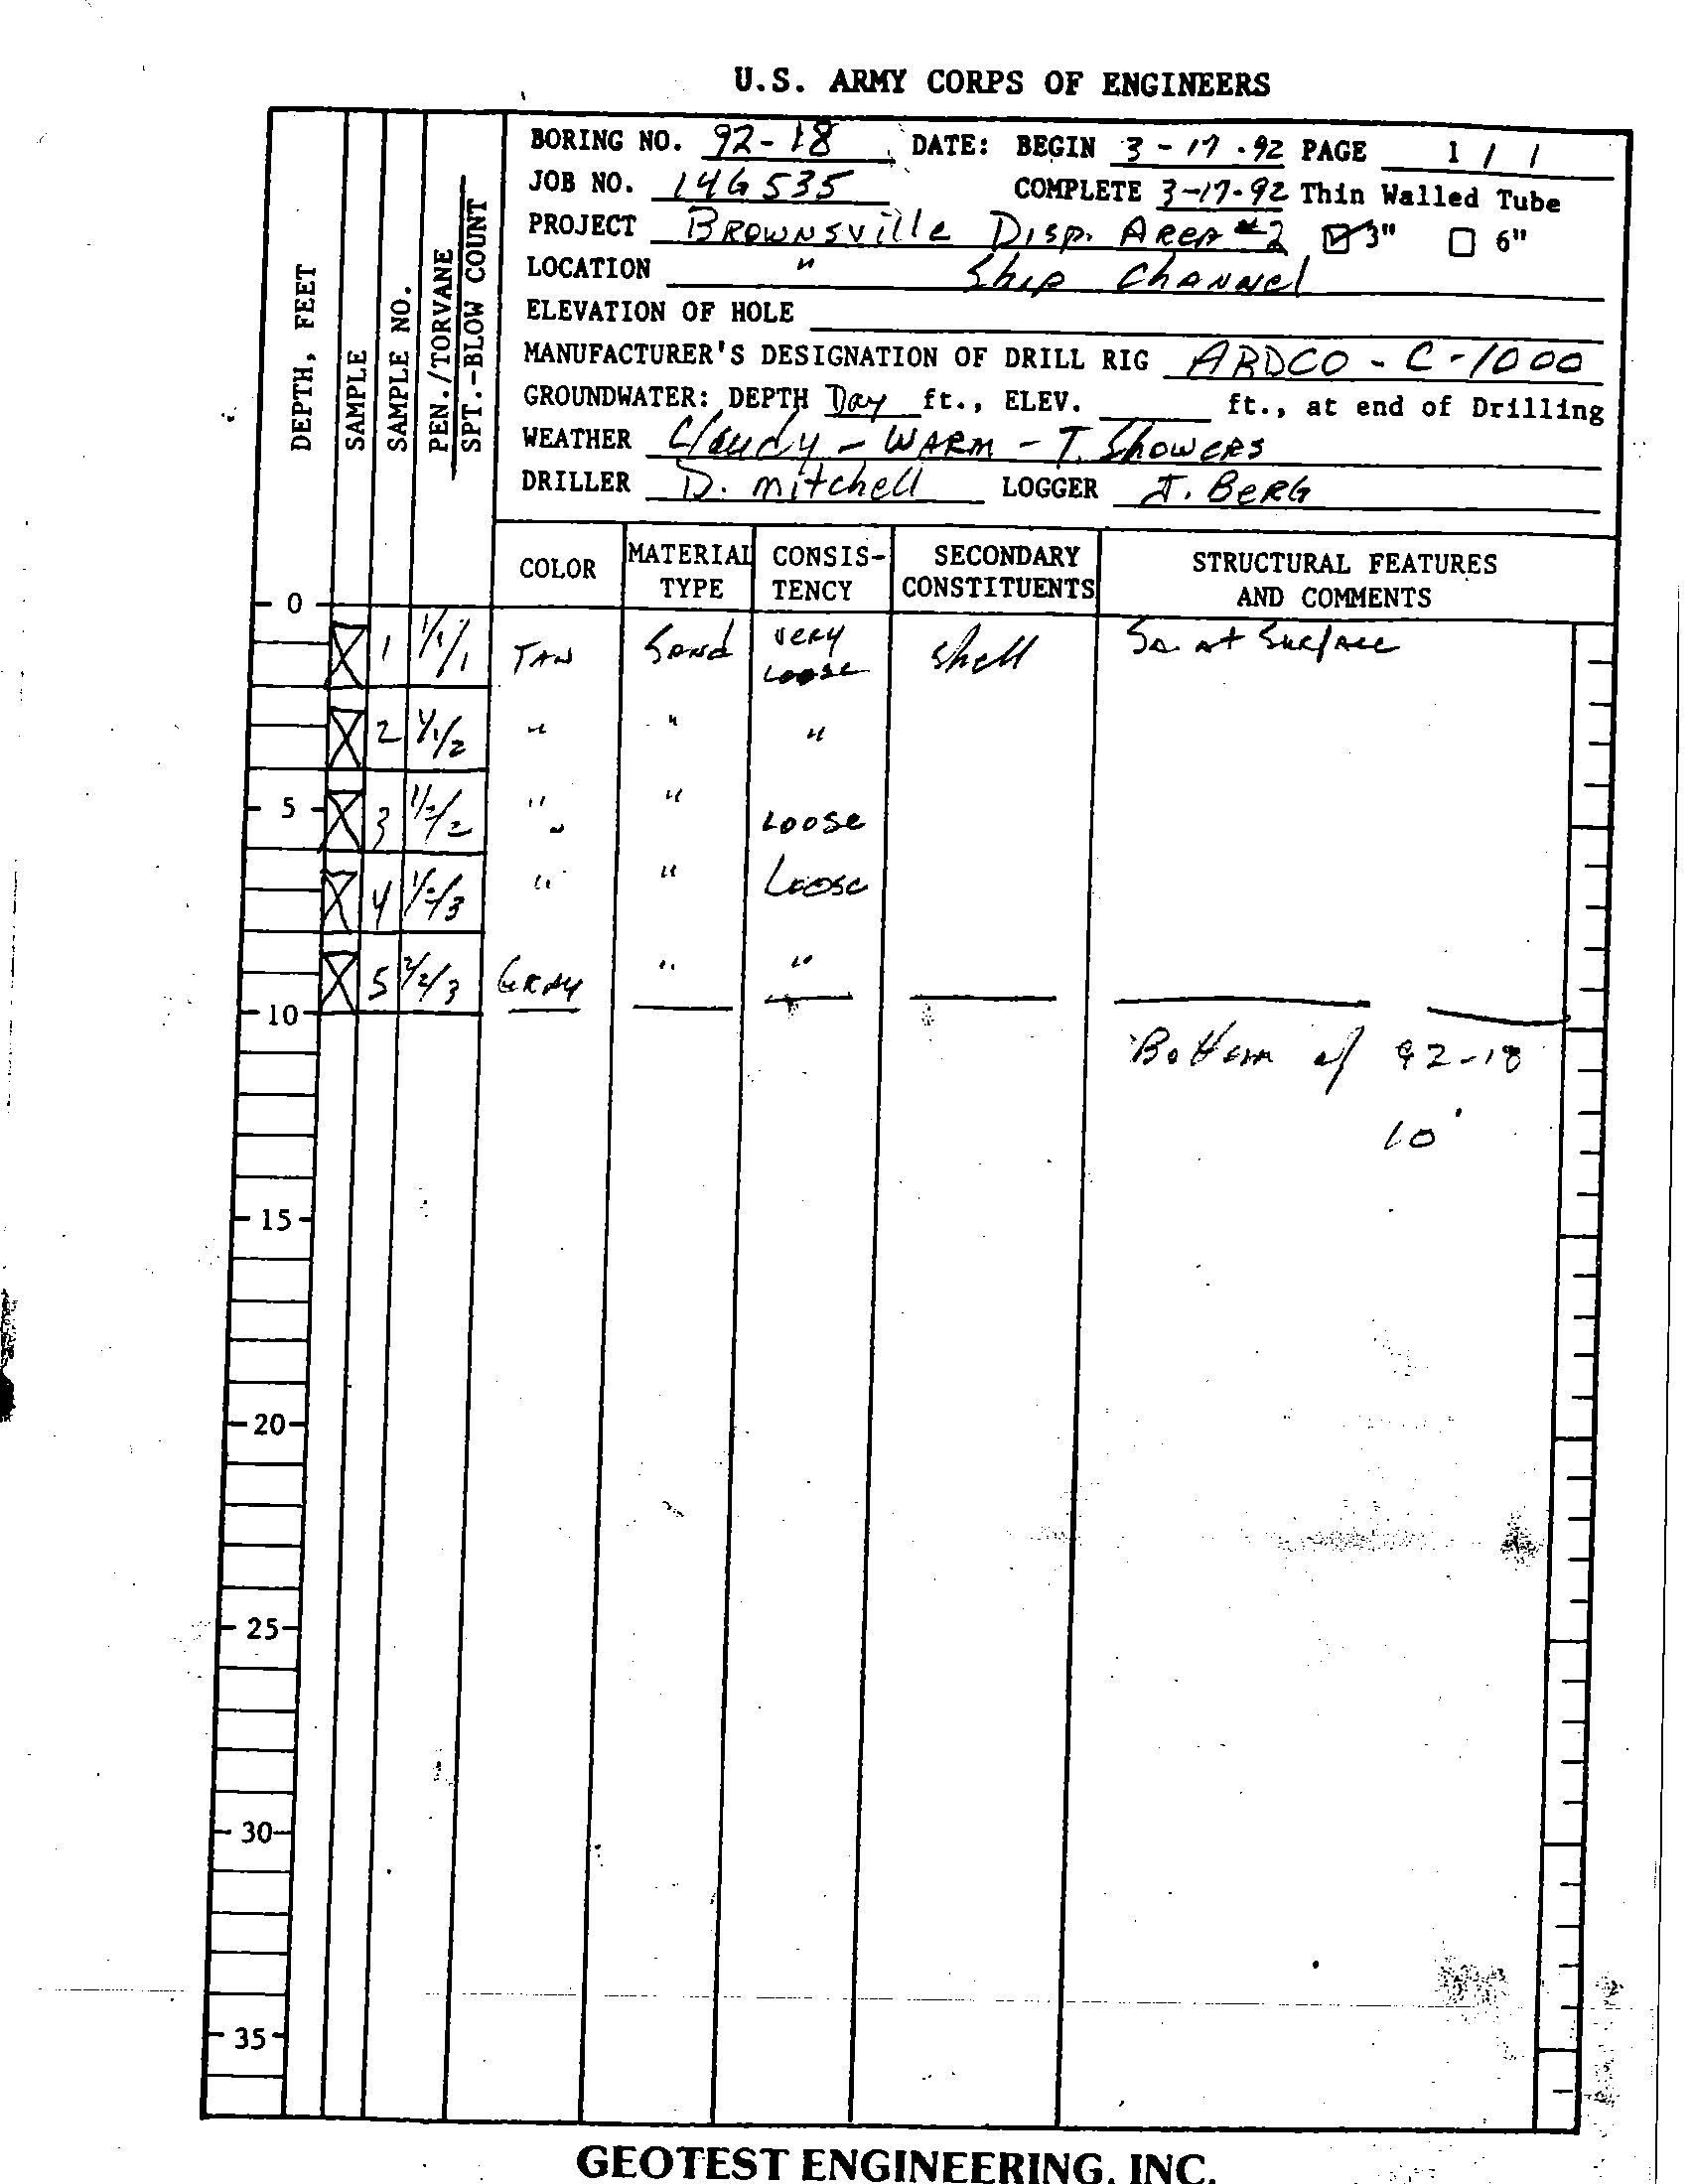 U.S. ARMY CORPS OF ENGINEERS
BORING NO. 92-18 DATE: BEGIN 3-17-92 PAGE 1 / 1
JOB NO. 14G535 COMPLETE 3-17-92 Thin Walled Tube
PROJECT Brownsville Disp. Area #2 ☑ 3" ☐ 6"
LOCATION " Ship Channel
ELEVATION OF HOLE
MANUFACTURER'S DESIGNATION OF DRILL RIG ARDCO - C-1000
GROUNDWATER: DEPTH Day ft., ELEV. ft., at end of Drilling
WEATHER Cloudy - WARM - T. Showers
DRILLER D. Mitchell LOGGER J. BERG
DEPTH, FEET
SAMPLE
SAMPLE NO.
PEN./TORVANE
SPT.-BLOW COUNT
COLOR MATERIAL TYPE CONSIS-TENCY SECONDARY CONSTITUENTS STRUCTURAL FEATURES AND COMMENTS
0
1 1/1/1 TAN Sand very loose Shell Sa. at Surface
2 1/1/2 " " "
5 3 1/2/2 " " " Loose
4 1/2/3 " " Loose
5 2/2/3 GRAY " "
10
Bottom of 92-18
10'
15
20
25
30
35
GEOTEST ENGINEERING, INC.